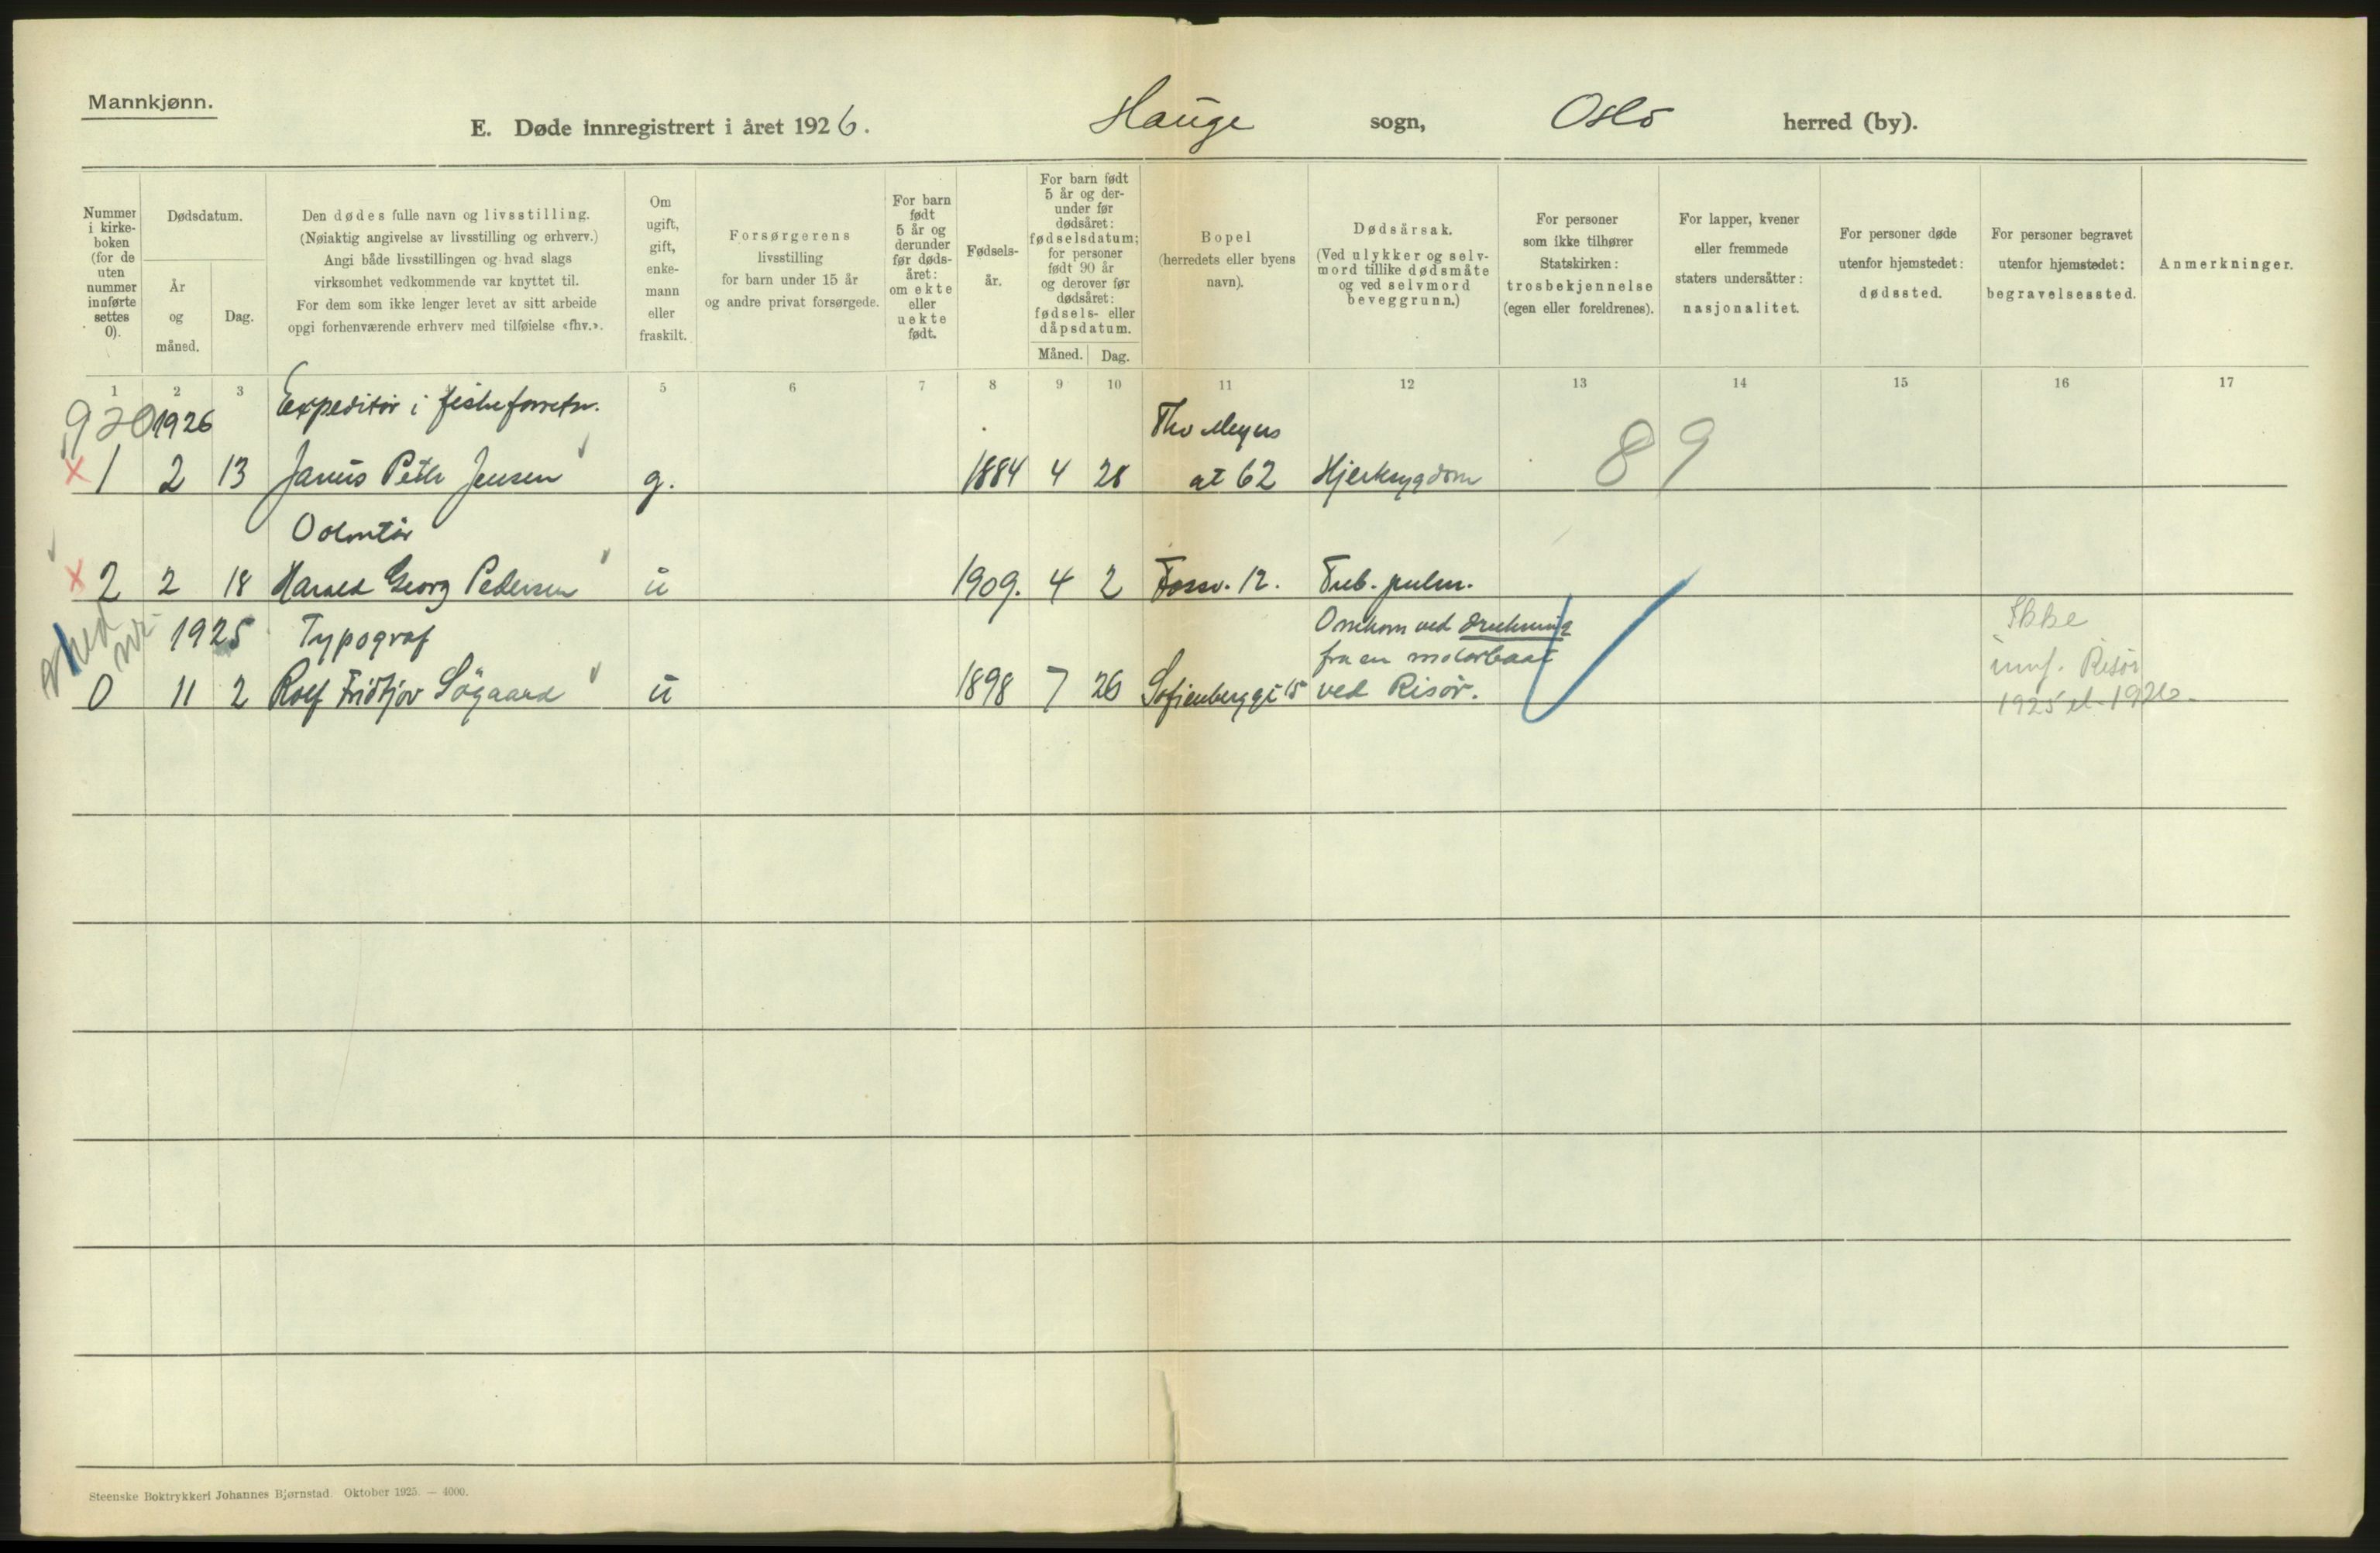 Mannkjønn.
E. Døde innregistrert i året 1926. Hauge sogn, Oslo herred (by).
Nummer i kirke-boken (for de uten nummer innførte settes 0).
Dødsdatum.
År og måned.
Dag.
Den dødes fulle navn og livsstilling.
(Nøiaktig angivelse av livsstilling og erhverv.)
Angi både livsstillingen og hvad slags
virksomhet vedkommende var knyttet til.
For dem som ikke lenger levet av sitt arbeide
opgi forhenværende erhverv med tilføielse «fhv.».
Om ugift, gift, enke-mann eller fraskilt.
Forsørgerens
livsstilling
for barn under 15 år
og andre privat forsørgede.
For barn født 5 år og derunder før døds-året: om ekte eller uekte født.
Fødsels-år.
For barn født 5 år og der-under før dødsåret: fødselsdatum; for personer født 90 år og derover før dødsåret: fødsels- eller dåpsdatum.
Måned. Dag.
Bopel
(herredets eller byens
navn).
Dødsårsak.
(Ved ulykker og selv-
mord tillike dødsmåte
og ved selvmord
beveggrunn.)
For personer
som ikke tilhører
Statskirken:
trosbekjennelse
(egen eller foreldrenes).
For lapper, kvener
eller fremmede
staters undersåtter:
nasjonalitet.
For personer døde
utenfor hjemstedet:
dødssted.
For personer begravet
utenfor hjemstedet:
begravelsessted.
Anmerkninger.
1 2 3 5 6 7 8 9 10 11 12 13 14 15 16 17
920 1926 Expeditör i fiskeforretn. Thv Meyers
x 1 2 13 Jarius Peter Jensen g. 1884 4 28 gt 62 Hjertesygdom 89
Volontör
x 2 2 18 Harald Georg Pedersen u 1909. 4 2 Fossv. 12. Tub. pulm.
1925 Typograf Omkom ved drukning Ikke
fra en motorbaat innf. Risör
0 11 2 Rolf Fridtjov Sögaard u 1898 7 26 Sofienberggt 15 ved Risör. 1925 el. 1926.
Steenske Boktrykkeri Johannes Bjørnstad. Oktober 1925. — 4000.